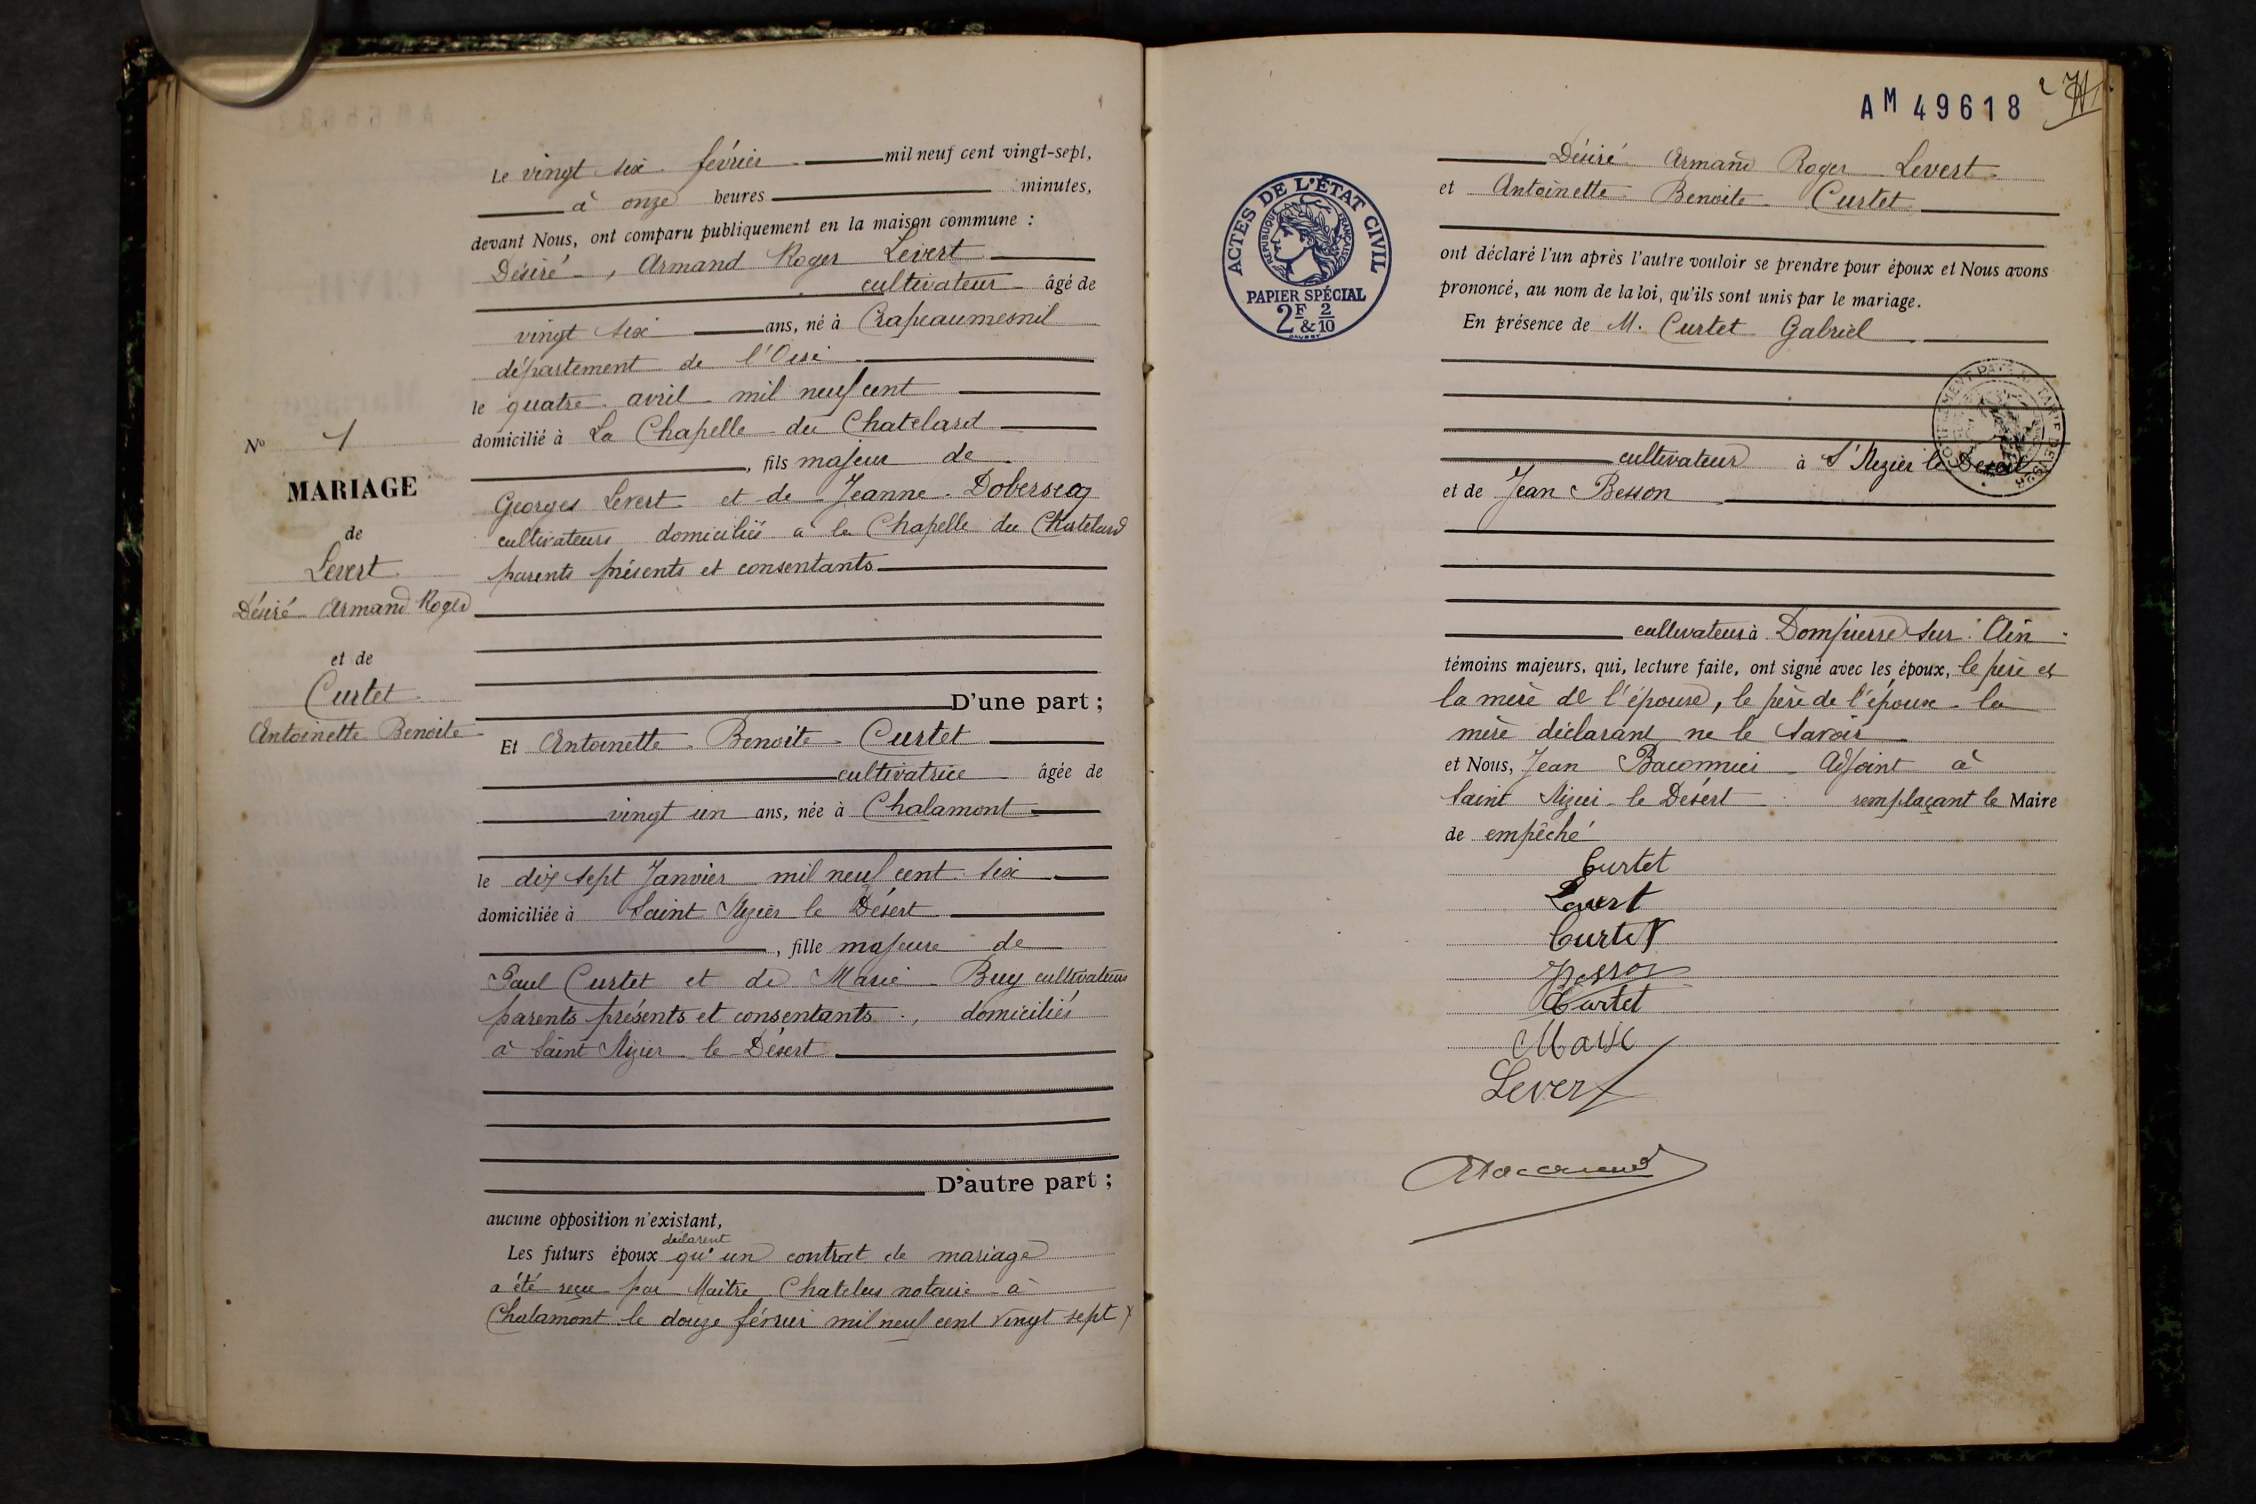 Le vingt six février mil neuf cent vingt-sept,
à onze heures minutes,
devant Nous, ont comparu publiquement en la maison commune :
Désiré, Armand Roger Levert
cultivateur âgé de
vingt six ans, né à Crapeaumesnil
département de l'Oise
le quatre avril mil neuf cent
domicilié à La Chapelle du Chatelard
, fils majeur de
Georges Levert et de Jeanne Doberseq
cultivateurs domiciliés à la Chapelle du Chatelard
parents présents et consentants
D'une part ;
Et Antoinette Benoite Curtet
cultivatrice âgée de
vingt un ans, née à Chalamont
le dix sept Janvier mil neuf cent six
domiciliée à Saint Nizier le Désert
, fille majeure de
Paul Curtet et de Marie Buy cultivateurs
parents présents et consentants, domiciliés
à Saint Nizier le Désert
D'autre part ;
aucune opposition n'existant,
déclarent
Les futurs époux qu'un contrat de mariage
a été reçu par Maître Chatelus notaire à
Chalamont le douze février mil neuf cent vingt sept
No 1
MARIAGE
de
Levert
Désiré Armand Roger
et de
Curtet
Antoinette Benoite
AM 49618
ACTES DE L'ÉTAT CIVIL
RÉPUBLIQUE FRANÇAISE
PAPIER SPÉCIAL
2F & 2/10
Désiré Armand Roger Levert
et Antoinette Benoite Curtet
ont déclaré l'un après l'autre vouloir se prendre pour époux et Nous avons
prononcé, au nom de la loi, qu'ils sont unis par le mariage.
En présence de M. Curtet Gabriel
cultivateur à St Nizier le Désert
et de Jean Besson
cultivateur à Dompierre sur Ain
témoins majeurs, qui, lecture faite, ont signé avec les époux, le père et
la mère de l'épouse, le père de l'époux la
mère déclarant ne le savoir
et Nous, Jean Baconnier Adjoint à
Saint Nizier le Désert remplaçant le Maire
de empêché
Curtet
Levert
Curtet
JBesson
Curtet
Marie
Levert